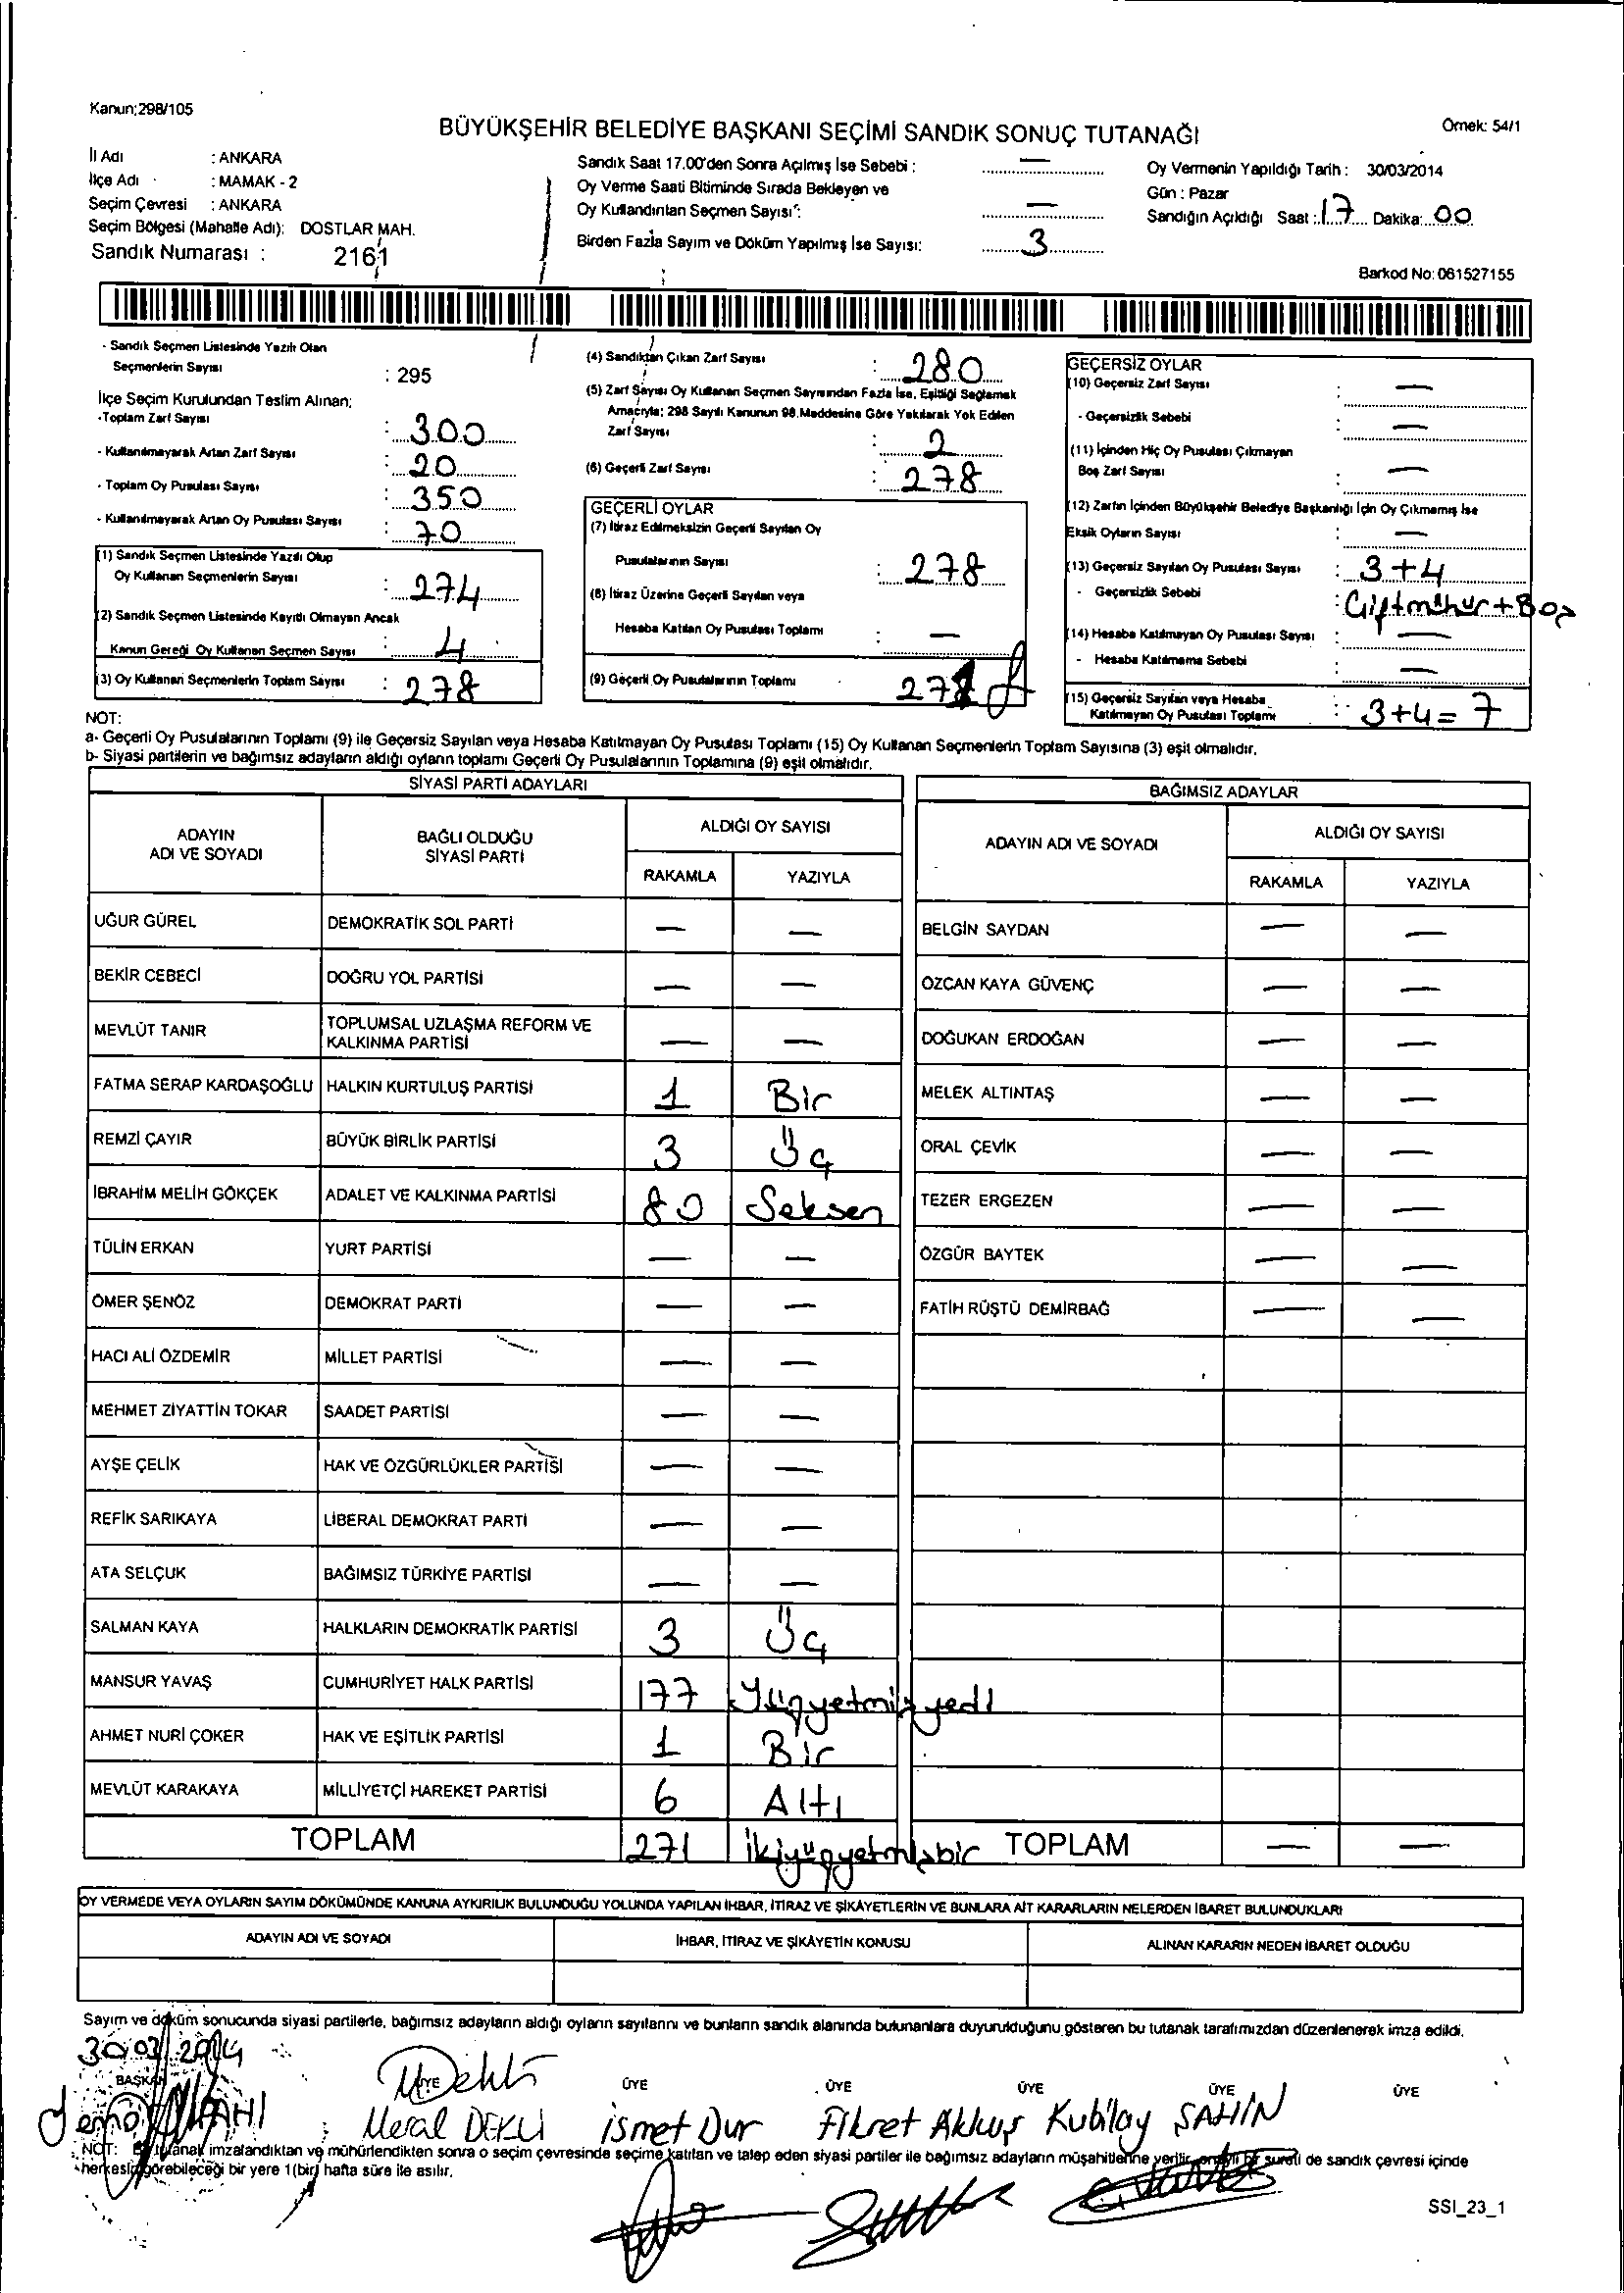 Kanun:298/105
BÜYÜKŞEHİR BELEDİYE BAŞKANI SEÇİMİ SANDIK SONUÇ TUTANAĞI
Örnek: 54/1
İl Adı : ANKARA
İlçe Adı : MAMAK - 2
Seçim Çevresi : ANKARA
Seçim Bölgesi (Mahalle Adı): DOSTLAR MAH.
Sandık Numarası : 2161
Sandık Saat 17.00'den Sonra Açılmış İse Sebebi : —
Oy Verme Saati Bitiminde Sırada Bekleyen ve
Oy Kullandırılan Seçmen Sayısı : —
Birden Fazla Sayım ve Döküm Yapılmış İse Sayısı: 3
Oy Vermenin Yapıldığı Tarih : 30/03/2014
Gün : Pazar
Sandığın Açıldığı Saat : 17 Dakika: 00
Barkod No: 061527155
- Sandık Seçmen Listesinde Yazılı Olan
Seçmenlerin Sayısı : 295
İlçe Seçim Kurulundan Teslim Alınan;
-Toplam Zarf Sayısı : 300
- Kullanılmayarak Artan Zarf Sayısı : 20
- Toplam Oy Pusulası Sayısı : 350
- Kullanılmayarak Artan Oy Pusulası Sayısı : 70
(1) Sandık Seçmen Listesinde Yazılı Olup
Oy Kullanan Seçmenlerin Sayısı : 274
(2) Sandık Seçmen Listesinde Kayıtlı Olmayan Ancak
Kanun Gereği Oy Kullanan Seçmen Sayısı : 4
(3) Oy Kullanan Seçmenlerin Toplam Sayısı : 278
(4) Sandıktan Çıkan Zarf Sayısı : 280
(5) Zarf Sayısı Oy Kullanan Seçmen Sayısından Fazla İse, Eşitliği Sağlamak
Amacıyla; 298 Sayılı Kanunun 98.Maddesine Göre Yakılarak Yok Edilen
Zarf Sayısı : 2
(6) Geçerli Zarf Sayısı : 278
GEÇERLİ OYLAR
(7) İtiraz Edilmeksizin Geçerli Sayılan Oy
Pusulalarının Sayısı : 278
(8) İtiraz Üzerine Geçerli Sayılan veya
Hesaba Katılan Oy Pusulası Toplamı : —
(9) Geçerli Oy Pusulalarının Toplamı 271
GEÇERSİZ OYLAR
(10) Geçersiz Zarf Sayısı : —
- Geçersizlik Sebebi : —
(11) İçinden Hiç Oy Pusulası Çıkmayan
Boş Zarf Sayısı : —
(12) Zarfın İçinden Büyükşehir Belediye Başkanlığı İçin Oy Çıkmamış İse
Eksik Oyların Sayısı : —
(13) Geçersiz Sayılan Oy Pusulası Sayısı : 3+4
- Geçersizlik Sebebi : Çift mühür + Boş
(14) Hesaba Katılmayan Oy Pusulası Sayısı : —
- Hesaba Katılmama Sebebi : —
(15) Geçersiz Sayılan veya Hesaba
Katılmayan Oy Pusulası Toplamı : 3+4= 7
NOT:
a- Geçerli Oy Pusulalarının Toplamı (9) ile Geçersiz Sayılan veya Hesaba Katılmayan Oy Pusulası Toplamı (15) Oy Kullanan Seçmenlerin Toplam Sayısına (3) eşit olmalıdır.
b- Siyasi partilerin ve bağımsız adayların aldığı oyların toplamı Geçerli Oy Pusulalarının Toplamına (9) eşit olmalıdır.
SİYASİ PARTİ ADAYLARI
ADAYIN ADI VE SOYADI BAĞLI OLDUĞU SİYASİ PARTİ ALDIĞI OY SAYISI
RAKAMLA YAZIYLA
UĞUR GÜREL DEMOKRATİK SOL PARTİ — —
BEKİR CEBECİ DOĞRU YOL PARTİSİ — —
MEVLÜT TANIR TOPLUMSAL UZLAŞMA REFORM VE KALKINMA PARTİSİ — —
FATMA SERAP KARDAŞOĞLU HALKIN KURTULUŞ PARTİSİ 1 Bir
REMZİ ÇAYIR BÜYÜK BİRLİK PARTİSİ 3 Üç
İBRAHİM MELİH GÖKÇEK ADALET VE KALKINMA PARTİSİ 80 Seksen
TÜLİN ERKAN YURT PARTİSİ — —
ÖMER ŞENÖZ DEMOKRAT PARTİ — —
HACI ALİ ÖZDEMİR MİLLET PARTİSİ — —
MEHMET ZİYATTİN TOKAR SAADET PARTİSİ — —
AYŞE ÇELİK HAK VE ÖZGÜRLÜKLER PARTİSİ — —
REFİK SARIKAYA LİBERAL DEMOKRAT PARTİ — —
ATA SELÇUK BAĞIMSIZ TÜRKİYE PARTİSİ — —
SALMAN KAYA HALKLARIN DEMOKRATİK PARTİSİ 3 Üç
MANSUR YAVAŞ CUMHURİYET HALK PARTİSİ 177 Yüzyetmişyedi
AHMET NURİ ÇOKER HAK VE EŞİTLİK PARTİSİ 1 Bir
MEVLÜT KARAKAYA MİLLİYETÇİ HAREKET PARTİSİ 6 Altı
TOPLAM 271 ikiyüzyetmişbir
BAĞIMSIZ ADAYLAR
ADAYIN ADI VE SOYADI ALDIĞI OY SAYISI
RAKAMLA YAZIYLA
BELGİN SAYDAN — —
ÖZCAN KAYA GÜVENÇ — —
DOĞUKAN ERDOĞAN — —
MELEK ALTINTAŞ — —
ORAL ÇEVİK — —
TEZER ERGEZEN — —
ÖZGÜR BAYTEK — —
FATİH RÜŞTÜ DEMİRBAĞ — —
TOPLAM — —
OY VERMEDE VEYA OYLARIN SAYIM DÖKÜMÜNDE KANUNA AYKIRILIK BULUNDUĞU YOLUNDA YAPILAN İHBAR, İTİRAZ VE ŞİKAYETLERİN VE BUNLARA AİT KARARLARIN NELERDEN İBARET BULUNDUKLARI
ADAYIN ADI VE SOYADI İHBAR, İTİRAZ VE ŞİKAYETİN KONUSU ALINAN KARARIN NEDEN İBARET OLDUĞU
Sayım ve döküm sonucunda siyasi partilerle, bağımsız adayların aldığı oyların sayılarını ve bunların sandık alanında bulunanlara duyurulduğunu gösteren bu tutanak tarafımızdan düzenlenerek imza edildi.
30/03/2014
BAŞKAN ÜYE ÜYE ÜYE ÜYE ÜYE ÜYE
Meral DEKLİ İsmet Dur Fikret Akkuş Kubilay ŞAHİN
NOT: Bu tutanak imzalandıktan ve mühürlendikten sonra o seçim çevresinde seçime katılan ve talep eden siyasi partiler ile bağımsız adayların müşahitlerine verilir, onaylı bir sureti de sandık çevresi içinde
herkesin görebileceği bir yere 1(bir) hafta süre ile asılır.
SSI_23_1